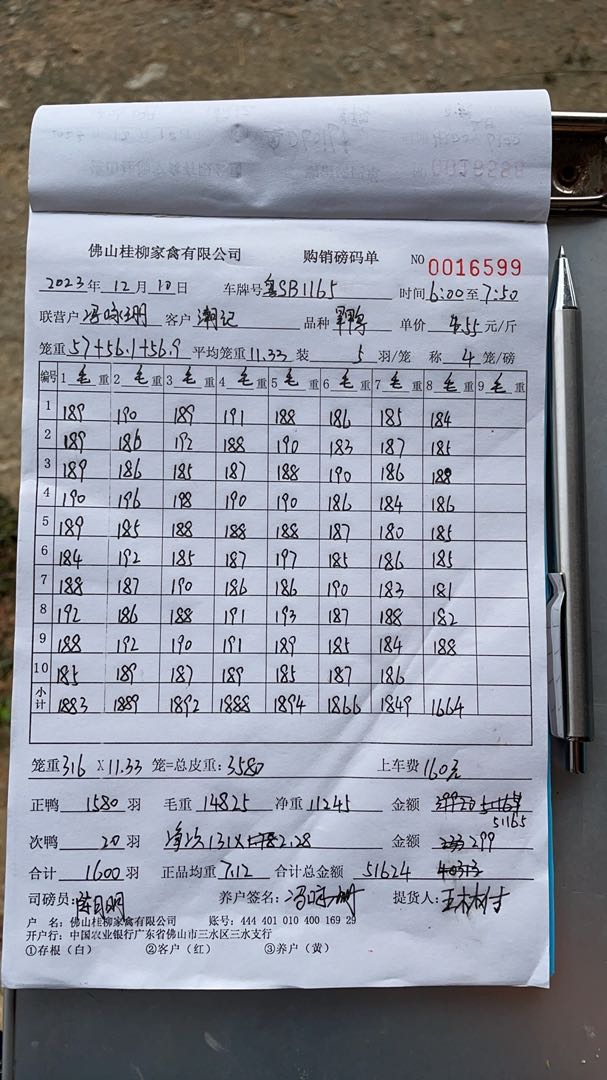 佛山桂柳家禽有限公司 购销磅码单 NO 0016599
2023年 12月 10日 车牌号 粤SB1165 时间 6:00 至 7:50
联营户 客户 潮记 品种 单价 4.55 元/斤
笼重 57+56.1+56.9 平均笼重 11.33 装 5 羽/笼 称 4 笼/磅
编号 1 毛 重 2 毛 重 3 毛 重 4 毛 重 5 毛 重 6 毛 重 7 毛 重 8 毛 重 9 毛 重
1 189 190 189 191 188 186 185 184
2 189 186 192 188 190 183 187 185
3 189 186 185 187 188 190 186 188
4 190 196 198 190 190 186 184 186
5 189 185 188 188 188 187 180 185
6 184 192 185 187 197 185 186 185
7 188 187 190 186 186 190 183 181
8 192 186 188 191 193 187 188 182
9 188 192 190 191 189 185 184 188
10 185 189 187 189 185 187 186
小计 1883 1889 1892 1888 1894 1866 1849 1664
笼重 316 X 11.33 笼=总皮重: 3580 上车费 160元
正鸭 1580 羽 毛重 14825 净重 11245 金额 51165
次鸭 20 羽 131X 2.28 金额 299
合计 1600 羽 正品均重 7.12 合计总金额 51624
司磅员: 养户签名: 提货人:
户 名: 佛山桂柳家禽有限公司 账号: 444 401 010 400 169 29
开户行: 中国农业银行广东省佛山市三水区三水支行
①存根(白) ②客户(红) ③养户(黄)